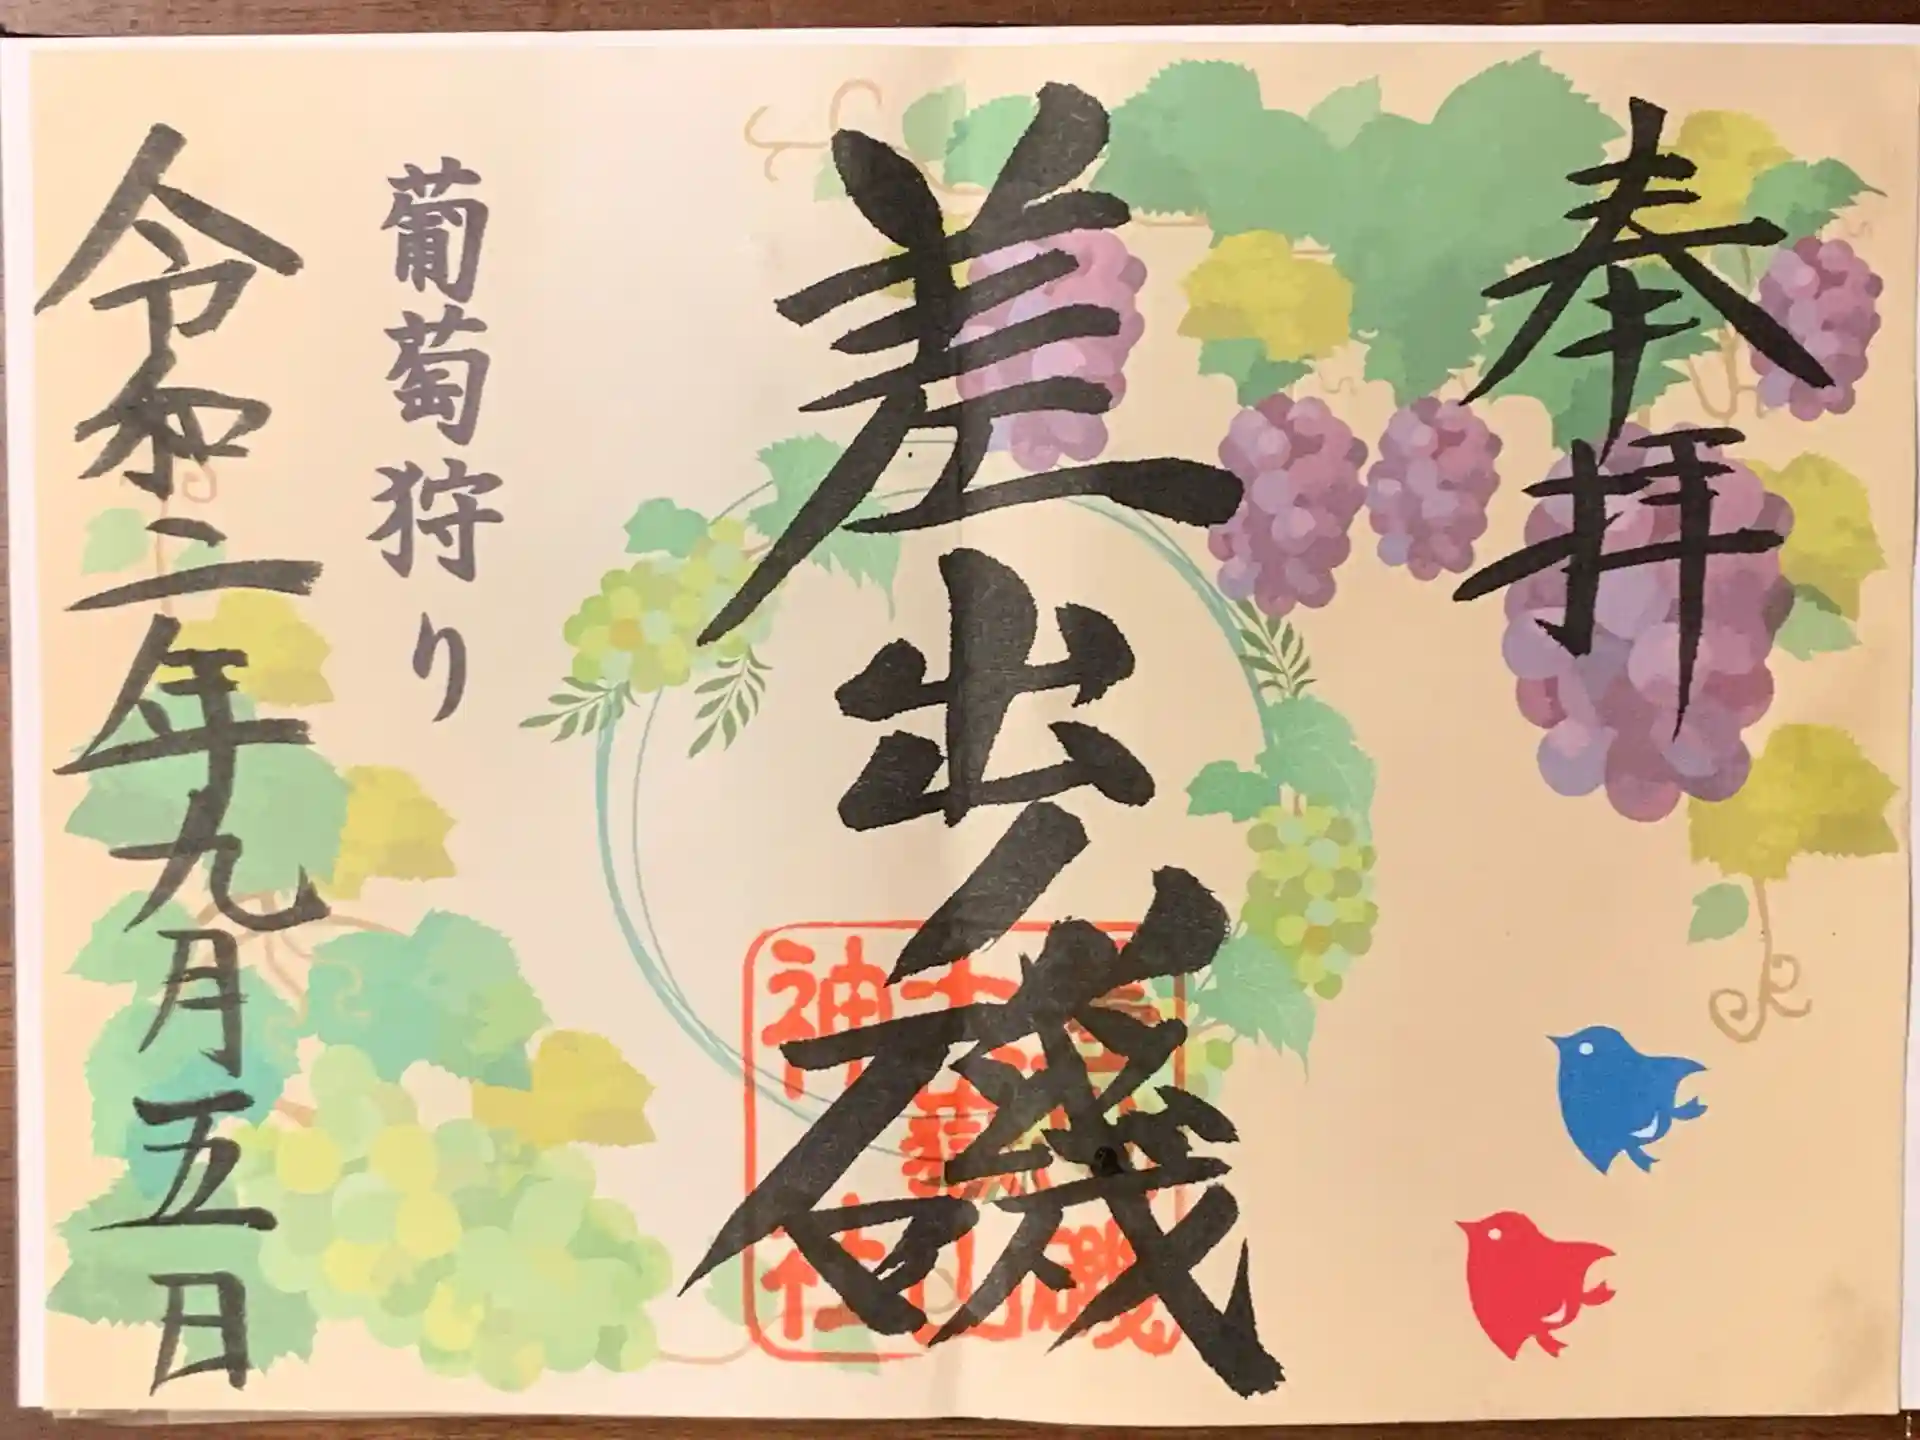 奉拝
差出磯
葡萄狩り
令和二年九月五日
神社